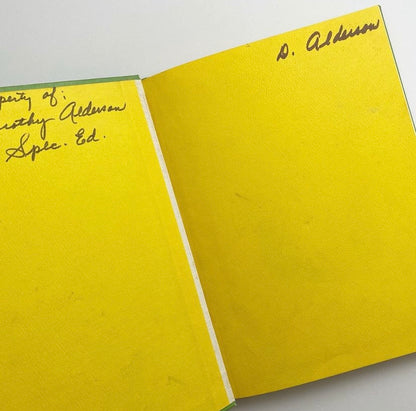 perty of:
rothy Alderson
Spec. Ed.
D. Alderson